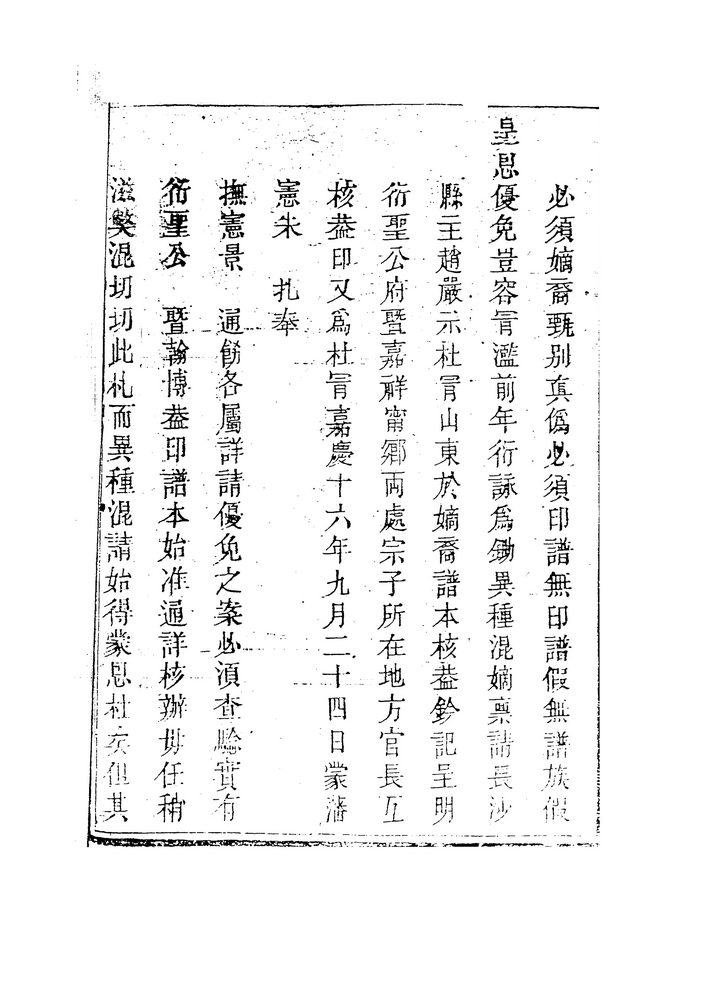 必須嫡裔甄别真偽必須印譜無印譜假無譜族假
皇恩優免豈容冒濫前年衍詠為鋤異種混嫡稟請長沙
縣主趙嚴示杜冒山東於嫡裔譜本核葢鈐記呈明
衍聖公府暨嘉祥甯鄉兩處宗子所在地方官長互
核葢印又爲杜冒嘉慶十六年九月二十四日蒙藩
憲朱 札奉
撫憲景 通飭各屬詳請優免之案必須查驗實有
衍聖公 暨翰博葢印譜本始准通詳核辦毋任稍
滋獘混切切此札而異種混請始得蒙恩杜矣但其